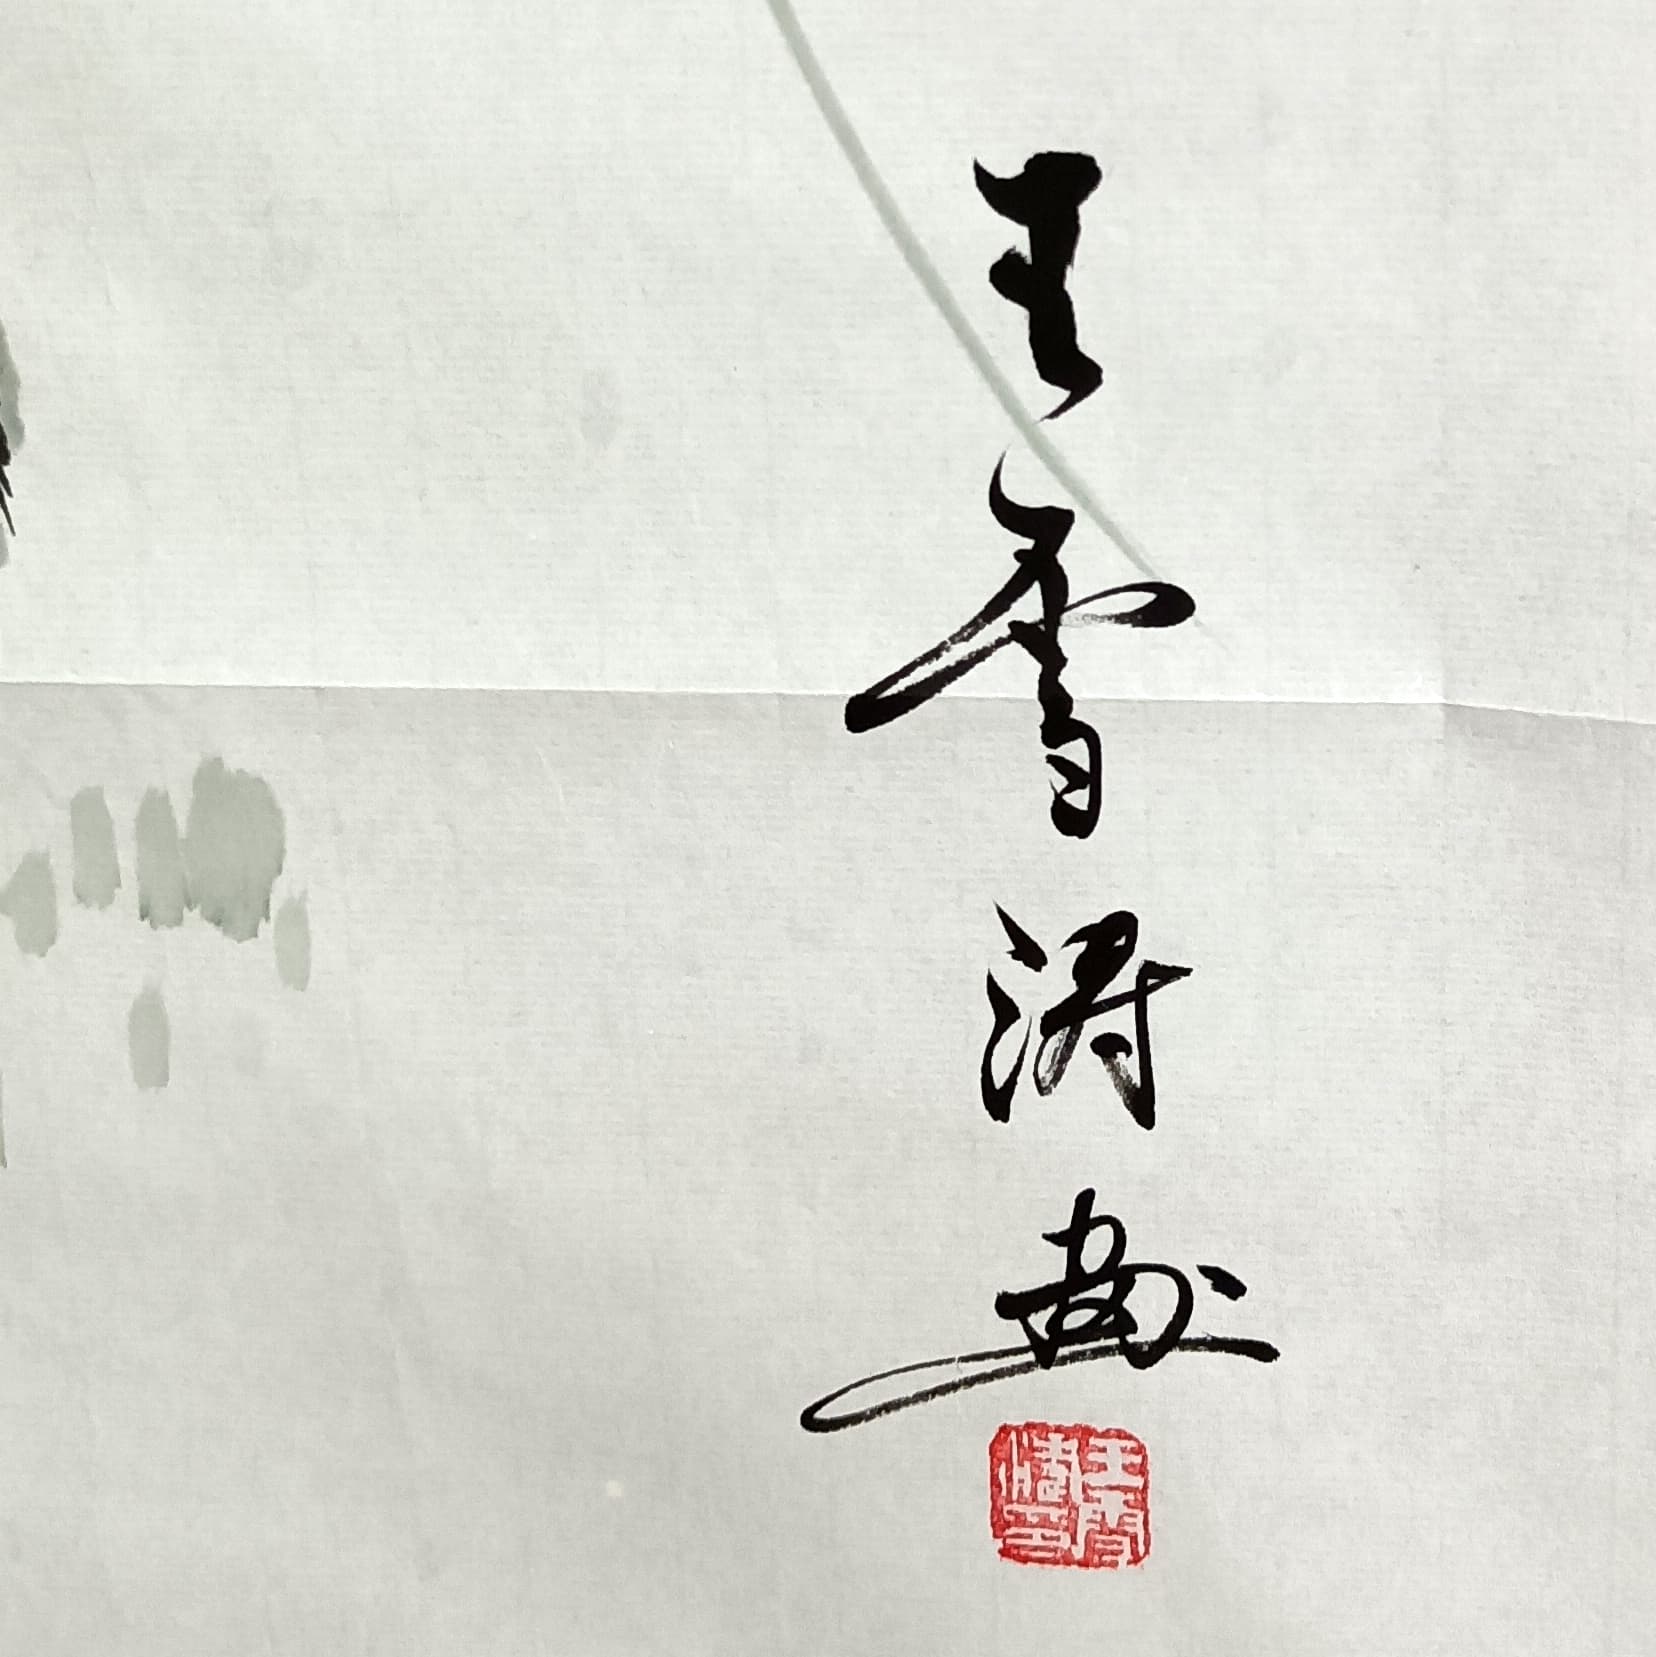 王雪涛画
王雪
濤印